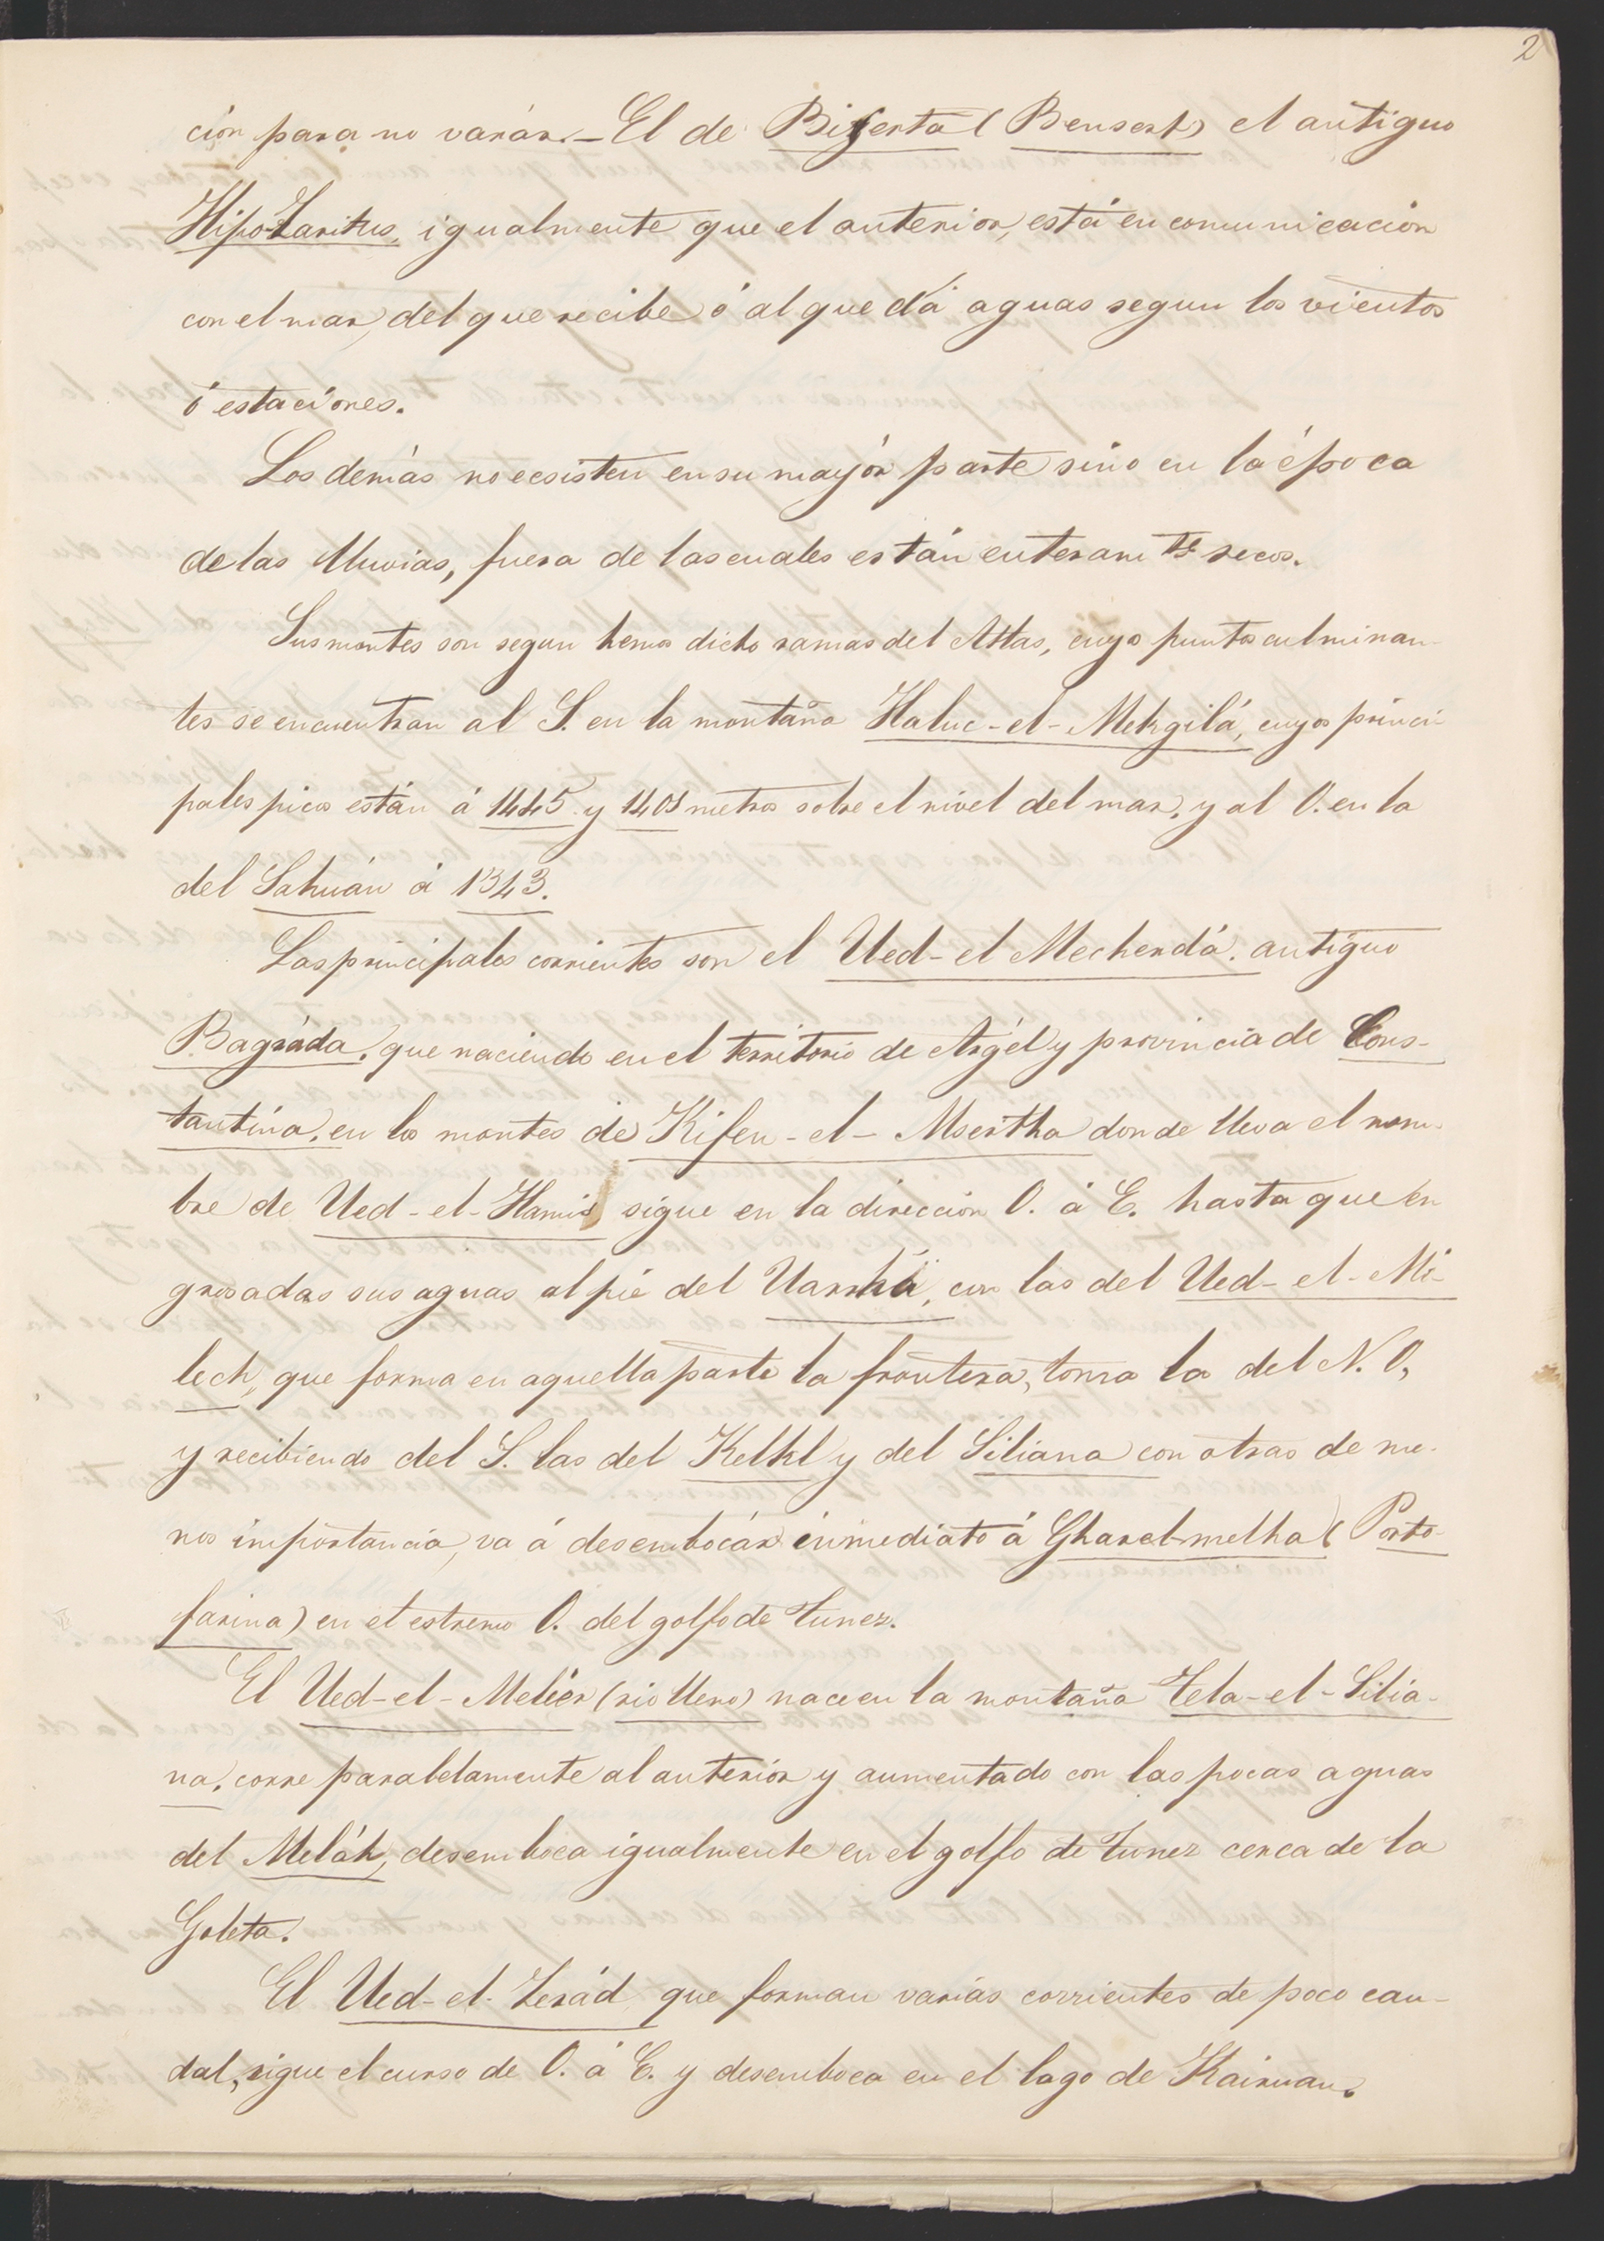 2
ción para no varár.—El de Biserta (Bensert) el antiguo
HipoZaritus, igualmente que el anterior, está en comunicación
con el mar, del que recibe ó al que dá aguas segun los vientos
ó estaciones.
Los demás no ecsisten en su mayór parte sino en la época
de las lluvias, fuera de las cuales están enteramte secos.
Sus montes son segun hemos dicho ramas del Atlas, cuyos puntos culminan-
tes se encuentran al S. en la montaña Haluc-el-Mekgilá, cuyos princi-
pales picos están á 1445 y 1401 metros sobre el nivel del mar, y al O. en la
del Sahuán á 1343.
Las principales corrientes son el Ued-el Mecherdá, antiguo
Bagráda, que naciendo en el territorio de Argél y provincia de Cons-
tantina, en los montes de Kifen-el-Msertha donde lleva el nom-
bre de Ued-el-Hamis sigue en la dirección O. á E. hasta que en
grosadas sus aguas al pié del Uarrhá, con las del Ued-el-Me-
lech, que forma en aquella parte la frontera, toma la del N. O,
y recibiendo del S. las del Kelkl y del Siliana con otras de me-
nos importancia, va á desembocár inmediato á Gharel-melha (Porto-
farina) en el estremo O. del golfo de Tunez.
El Ued-el-Melier (rio lleno) nace en la montaña Tela-el-Silia-
na, corre paralelamente al anteriór y aumentado con las pocas aguas
del Meláh, desemboca igualmente en el golfo de Tunez cerca de la
Goleta.
El Ued-el-Zerád que forman varias corrientes de poco cau-
dal, sigue el curso de O. á E. y desemboca en el lago de Kairuan.